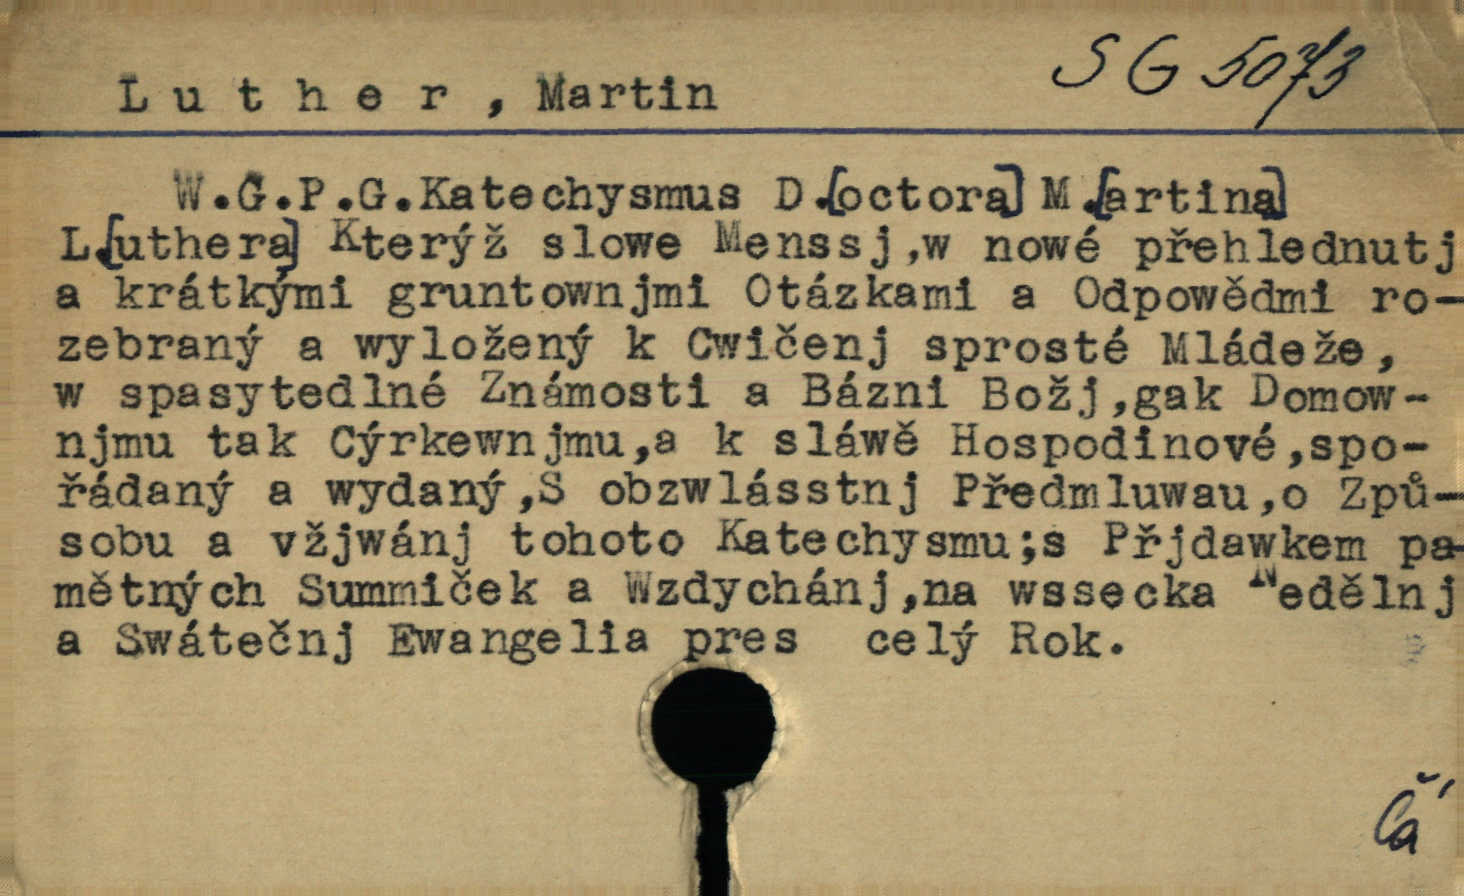 SG 5073
Luther, Martin
W.G.P.G.Katechysmus D.[octora] M.[artina]
L.[uthera] Kterýž slowe Menssj,w nowé přehlednutj
a krátkými gruntownjmi Otázkami a Odpowědmi ro-
zebraný a wyložený k Cwičenj sprosté Mládeže,
w spasytedlné Známosti a Bázni Božj,gak Domow-
njmu tak Cýrkewnjmu,a k sláwě Hospodinové,spo-
řádaný a wydaný,S obzwlásstnj Předmluwau,o Způ-
sobu a vžjwánj tohoto Katechysmu;s Přjdawkem pa-
mětných Summiček a Wzdychánj,na wssecka Nedělnj
a Swátečnj Ewangelia pres celý Rok.
Čá